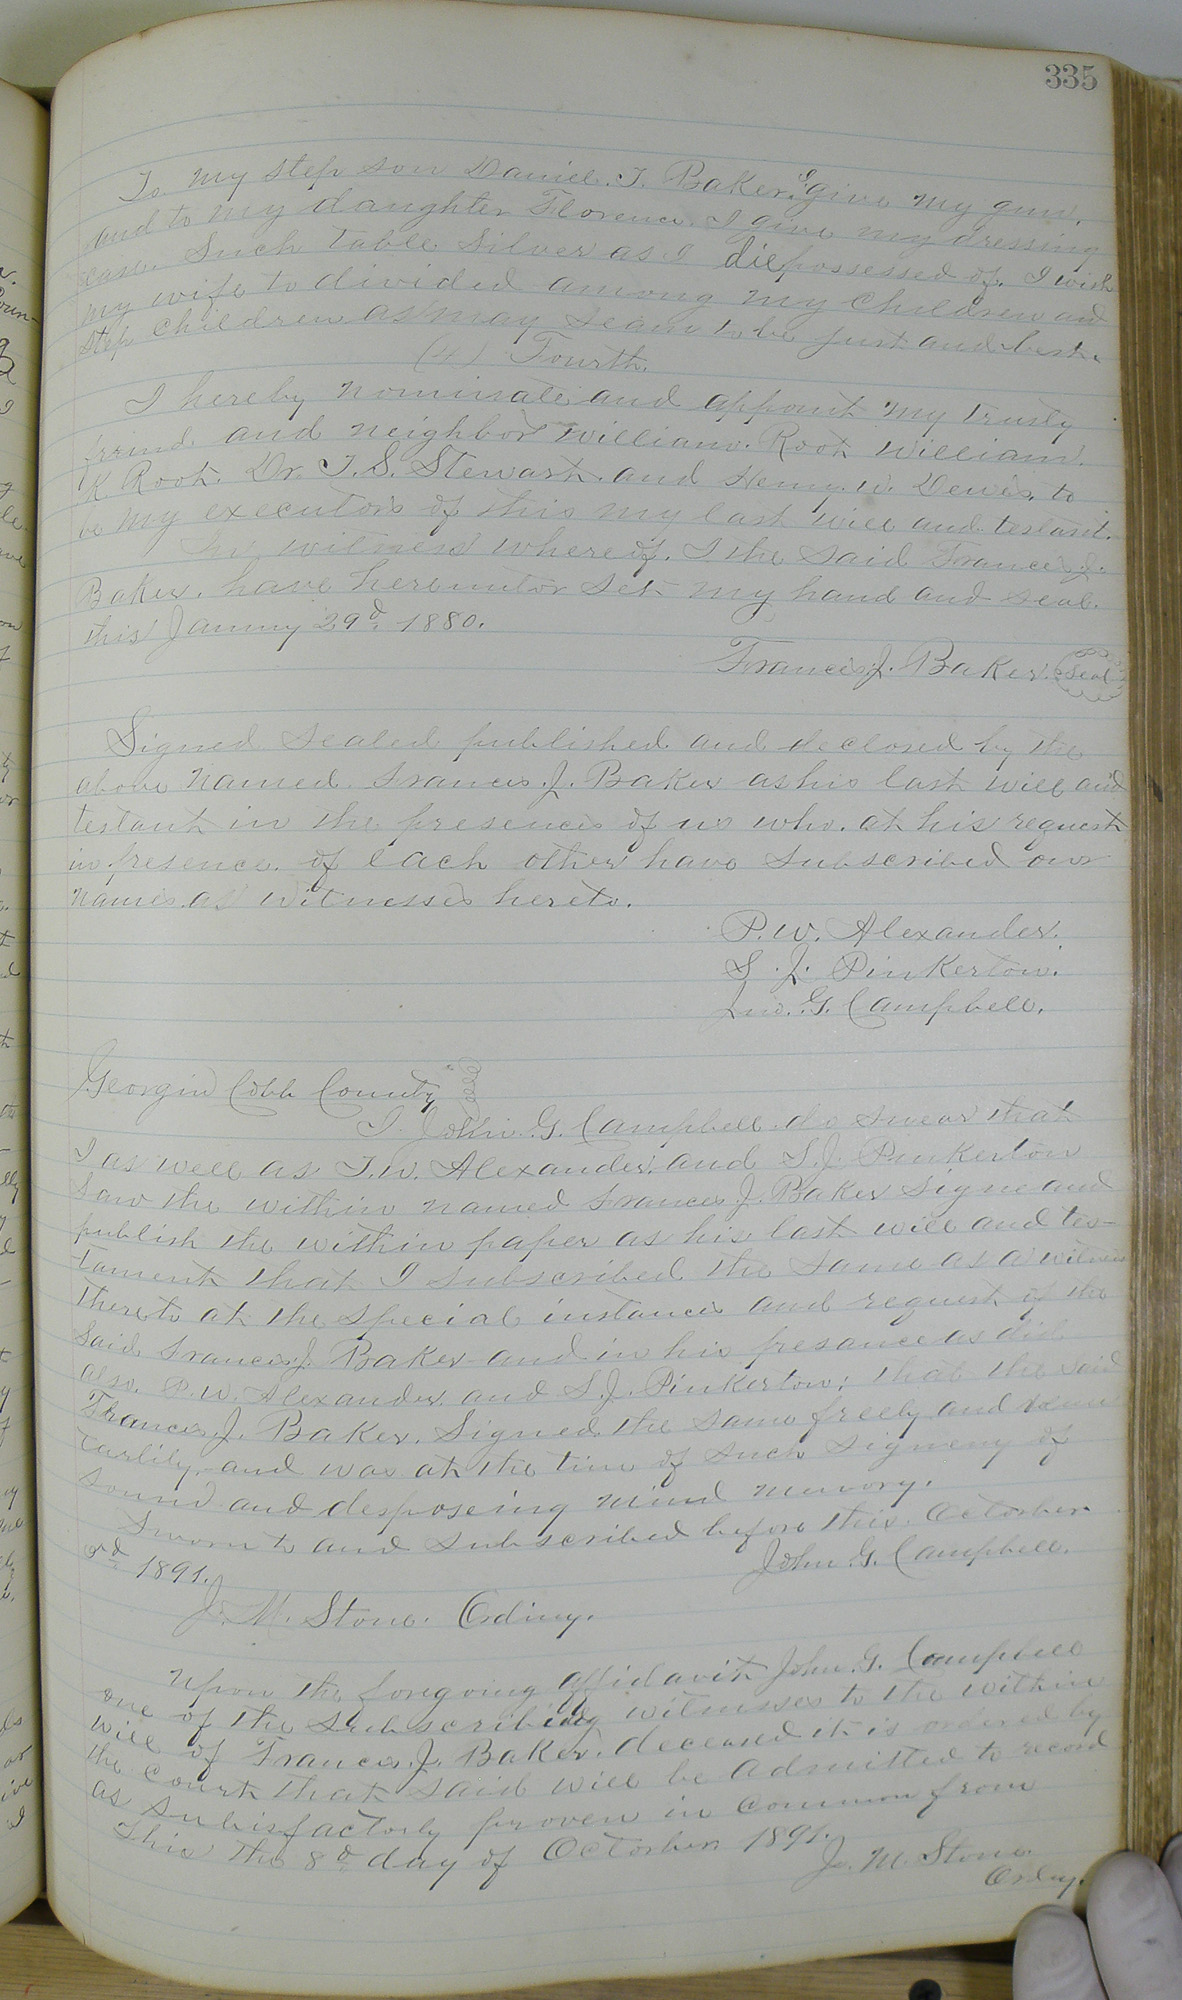 335
To my step son Daniel. T. Baker. I give my gun.
and to my daughter Florence. I give my dressing
case. Such table Silver as I die possessed of. I wish
my wife to divided among my children and
step children as may seam to be just and best.
(4) Fourth.
I hereby nominate and appoint my trusty
friend and neighbor William. Root William.
K. Root. Dr. T. S. Stewart. and Henry. W. Dewis. to
be my executors of this my last will and testant.
In witness whereof. I the said Francis J.
Baker. have hereunto set my hand and seal.
this January 29d. 1880.
Francis J. Baker. Seal
Signed sealed published and declosed by the
above named Francis. J. Baker as his last will and
testant in the presence of us who. at his request
in presence. of each other have subscribed our
names. as witnesses hereto.
P. W. Alexander.
S. J. Pinkerton.
Jno. G. Campbell.
Georgia Cobb County
I. John. G. Campbell do swear that
I as well as T. W. Alexander. and S. J. Pinkerton
saw the within named Francis J. Baker signe and
publish the within paper as his last will and tes-
tament that I subscribed the same as a witness
thereto at the special instance and request of the
said Francis J. Baker and in his presance as did
also. P. W. Alexander. and S. J. Pinkerton; that the said
Francis J. Baker. Signed the same freely and
tarlily and was at the time of such signeny of
sound and desposeing mind memory.
Sworn to and subscribed before this. Octorber
1891. John G. Campbell.
J. M. Stone. Ordiny.
Upon the foregoing affidavit John. G. Campbell
one of the subscribing witnesses to the within
will of Francis. J. Baker. deceased it is ordered by
the court that said will be admitted to record
as subisfactorly proven in common from
This the 8d day of Octorber 1891.
J. M. Stone.
Ordny.